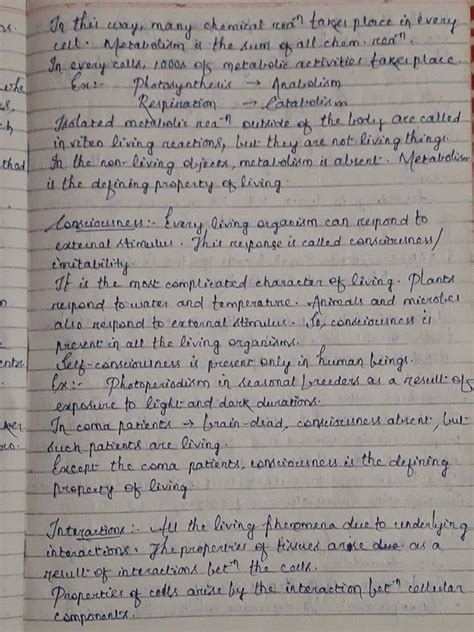 In this way, many chemical reaⁿ takes place in every
cell. Metabolism is the sum of all chem. reaⁿ.
In every cells, 1000s of metabolic activities takes place.
Ex:- Photosynthesis → Anabolism
Respiration → Catabolism
Isolated metabolic rea-ⁿ outside of the body are called
in vitro living reactions, but they are not living things.
In the non-living objects, metabolism is absent. Metabolism
is the defining property of living.
Consciousness:- Every living organism can respond to
external stimulus. This response is called consciousness/
irritability.
It is the most complicated character of living. Plants
respond to water and temperature. Animals and microbes
also respond to external stimulus. So, consciousness is
present in all the living organisms.
Self-consciousness is present only in human beings.
Ex:- Photoperiodism in seasonal breeders as a result of
exposure to light and dark durations.
In coma patients → brain-dead, consciousness absent, but
such patients are living.
Except the coma patients, consciousness is the defining
property of living.
Interactions:- All the living phenomena due to underlying
interactions. The properties of tissues arise due as a
result of interactions betⁿ the cells.
Properties of cells arise by the interaction betⁿ cellular
components.